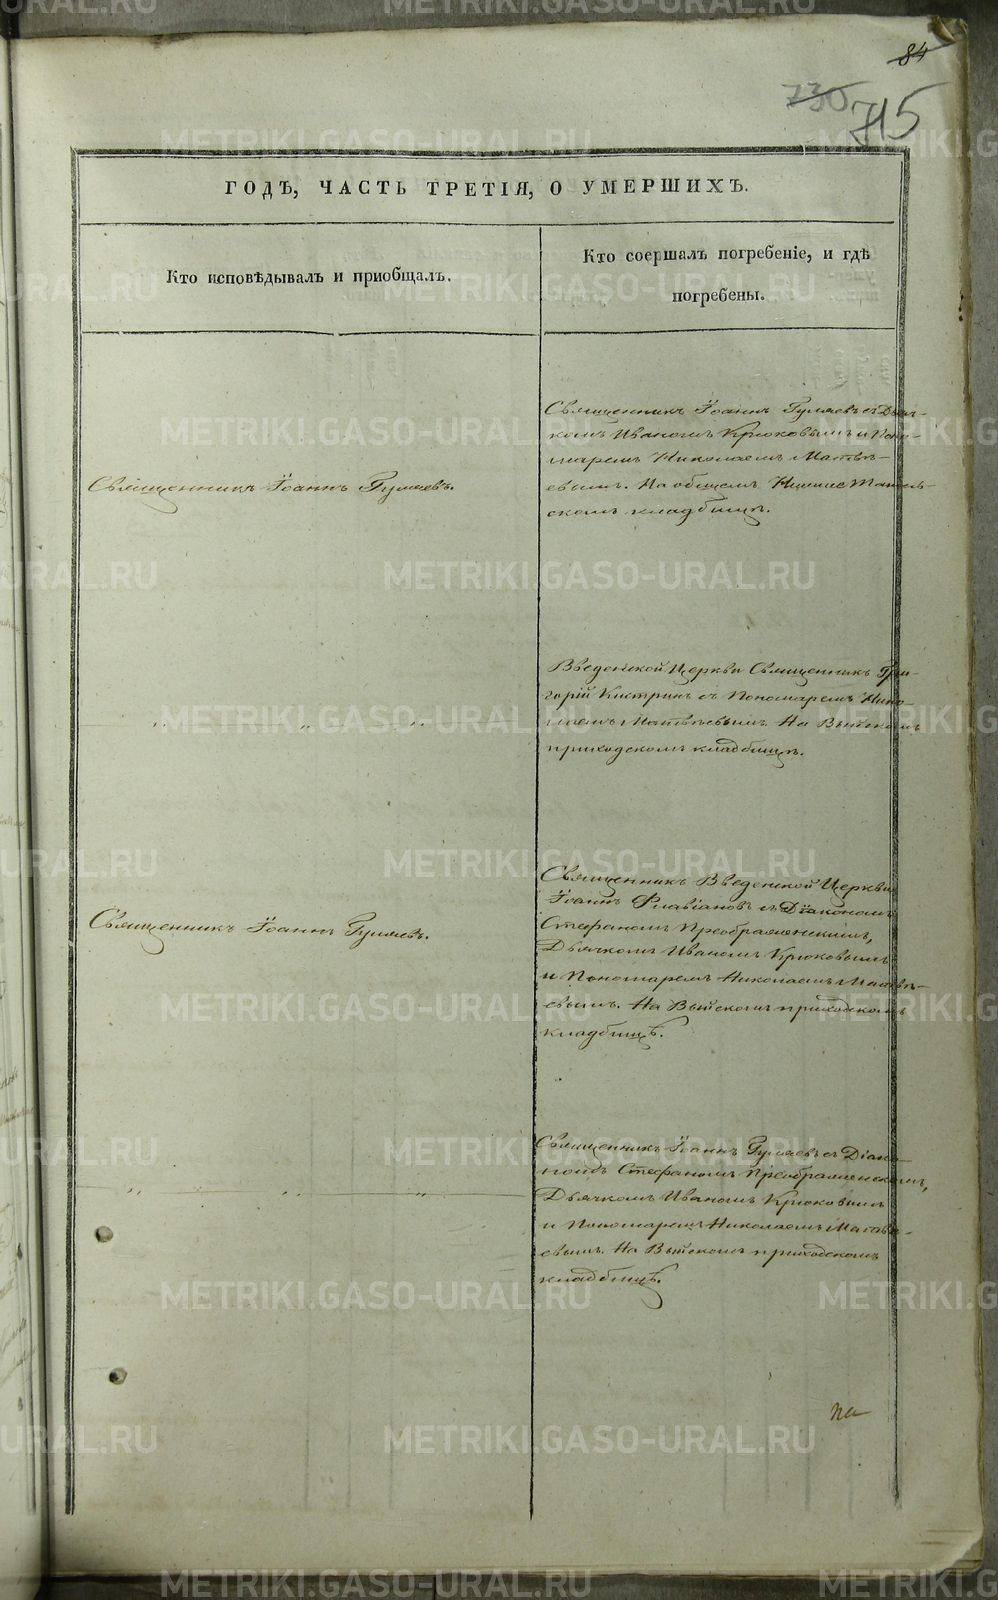 84
730 715
ГОДЪ, ЧАСТЬ ТРЕТІЯ, О УМЕРШИХЪ.
Кто исповѣдывалъ и приобщалъ.
Кто соершалъ погребеніе, и гдѣ
погребены.
Священникъ Іоаннъ Гуляевъ.
Священникъ Іоаннъ Гуляевъ съ Дьяч-
комъ Иваномъ Крюковымъ и Поно-
маремъ Николаемъ Матвѣ-
евымъ. На общемъ Нижне Тагиль-
скомъ кладбищѣ.
„ „ „
Введенской Церкви Священникъ Гри-
горій Кистринъ съ Пономаремъ Нико-
лаемъ Матвѣевымъ. На Выйскомъ
приходскомъ кладбищѣ.
Священникъ Іоаннъ Гуляевъ.
Священникъ Введенской Церкви
Іоаннъ Флавіановъ съ Діакономъ
Стефаномъ Преображенскимъ,
Дьячкомъ Иваномъ Крюковымъ
и Пономаремъ Николаемъ Матвѣ-
евымъ. На Выйскомъ приходскомъ
кладбищѣ.
„ „ „
Священникъ Іоаннъ Гуляевъ съ Діако-
номъ Стефаномъ Преображенскимъ,
Дьячкомъ Иваномъ Крюковымъ
и Пономаремъ Николаемъ Матвѣ-
евымъ. На Выйскомъ приходскомъ
кладбищѣ.
на
METRIKI.GASO-URAL.RU